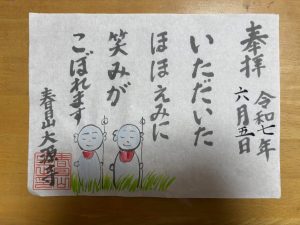 奉拝
令和七年
六月五日
いただいた
ほほえみに
笑みが
こぼれます
春日山 大